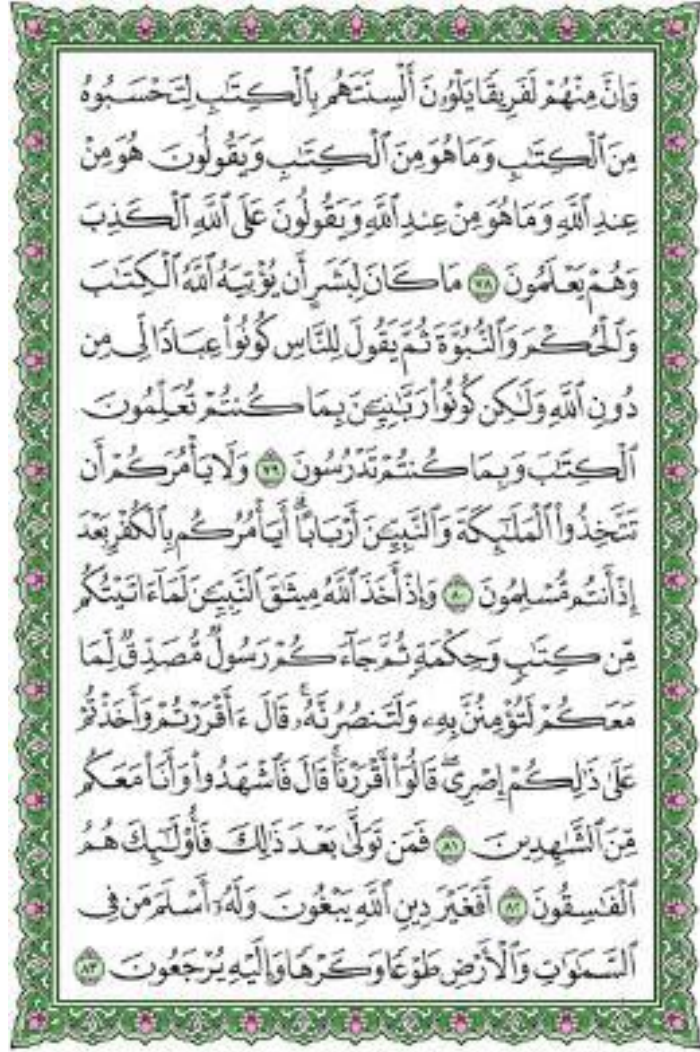 وَإِنَّ مِنْهُمْ لَفَرِيقًا يَلْوُۥنَ أَلْسِنَتَهُم بِٱلْكِتَٰبِ لِتَحْسَبُوهُ
مِنَ ٱلْكِتَٰبِ وَمَا هُوَ مِنَ ٱلْكِتَٰبِ وَيَقُولُونَ هُوَ مِنْ
عِندِ ٱللَّهِ وَمَا هُوَ مِنْ عِندِ ٱللَّهِ وَيَقُولُونَ عَلَى ٱللَّهِ ٱلْكَذِبَ
وَهُمْ يَعْلَمُونَ ٧٨ مَا كَانَ لِبَشَرٍ أَن يُؤْتِيَهُ ٱللَّهُ ٱلْكِتَٰبَ
وَٱلْحُكْمَ وَٱلنُّبُوَّةَ ثُمَّ يَقُولَ لِلنَّاسِ كُونُوا۟ عِبَادًا لِّى مِن
دُونِ ٱللَّهِ وَلَٰكِن كُونُوا۟ رَبَّٰنِيِّۦنَ بِمَا كُنتُمْ تُعَلِّمُونَ
ٱلْكِتَٰبَ وَبِمَا كُنتُمْ تَدْرُسُونَ ٧٩ وَلَا يَأْمُرَكُمْ أَن
تَتَّخِذُوا۟ ٱلْمَلَٰٓئِكَةَ وَٱلنَّبِيِّۦنَ أَرْبَابًا ۗ أَيَأْمُرُكُم بِٱلْكُفْرِ بَعْدَ
إِذْ أَنتُم مُّسْلِمُونَ ٨٠ وَإِذْ أَخَذَ ٱللَّهُ مِيثَٰقَ ٱلنَّبِيِّۦنَ لَمَآ ءَاتَيْتُكُم
مِّن كِتَٰبٍ وَحِكْمَةٍ ثُمَّ جَآءَكُمْ رَسُولٌ مُّصَدِّقٌ لِّمَا
مَعَكُمْ لَتُؤْمِنُنَّ بِهِۦ وَلَتَنصُرُنَّهُۥ ۚ قَالَ ءَأَقْرَرْتُمْ وَأَخَذْتُمْ
عَلَىٰ ذَٰلِكُمْ إِصْرِى ۖ قَالُوٓا۟ أَقْرَرْنَا ۚ قَالَ فَٱشْهَدُوا۟ وَأَنَا۠ مَعَكُم
مِّنَ ٱلشَّٰهِدِينَ ٨١ فَمَن تَوَلَّىٰ بَعْدَ ذَٰلِكَ فَأُو۟لَٰٓئِكَ هُمُ
ٱلْفَٰسِقُونَ ٨٢ أَفَغَيْرَ دِينِ ٱللَّهِ يَبْغُونَ وَلَهُۥٓ أَسْلَمَ مَن فِى
ٱلسَّمَٰوَٰتِ وَٱلْأَرْضِ طَوْعًا وَكَرْهًا وَإِلَيْهِ يُرْجَعُونَ ٨٣